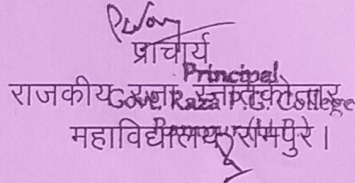 प्राचार्य
Principal
राजकीय रज़ा स्नातकोत्तर
Govt. Raza P.G. College
महाविद्यालय रामपुर।